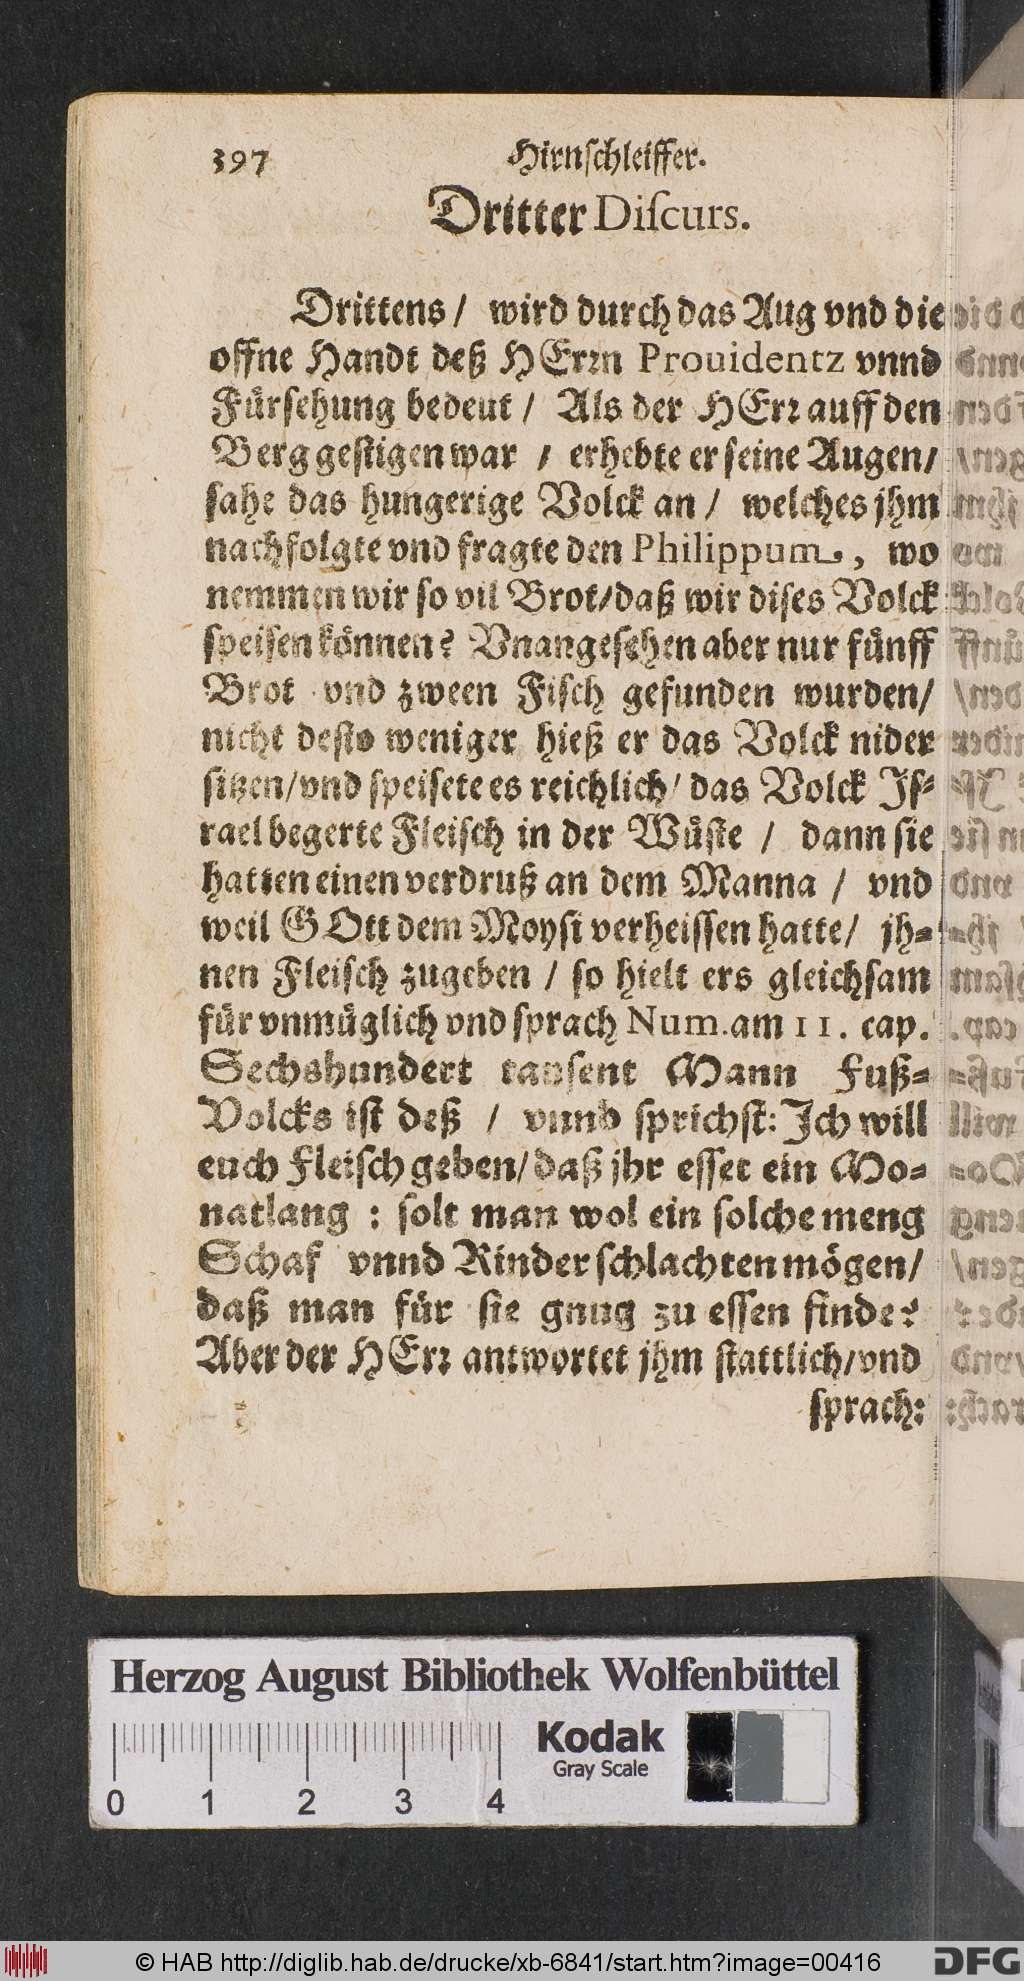 397 Hirnschleiffer.
Dritter Discurs.
Drittens / wird durch das Aug vnd die
offne Handt deß HErrn Prouidentz vnnd
Fürsehung bedeut / Als der HErr auff den
Berg gestigen war / erhebte er seine Augen /
sahe das hungerige Volck an / welches jhm
nachfolgte vnd fragte den Philippum, wo
nemmen wir so vil Brot / daß wir dises Volck
speisen können? Vnangesehen aber nur fünff
Brot vnd zween Fisch gefunden wurden /
nicht desto weniger hieß er das Volck nider
sitzen / vnd speisete es reichlich / das Volck Js-
rael begerte Fleisch in der Wüste / dann sie
hatten einen verdruß an dem Manna / vnd
weil GOtt dem Moysi verheissen hatte / jh-
nen Fleisch zugeben / so hielt ers gleichsam
für vnmüglich vnd sprach Num. am 11. cap.
Sechshundert tausent Mann Fuß-
Volcks ist deß / vnnd sprichst: Jch will
euch Fleisch geben / daß jhr esset ein Mo-
natlang : solt man wol ein solche meng
Schaf vnnd Rinder schlachten mögen /
daß man für sie gnug zu essen finde?
Aber der HErr antwortet jhm stattlich / vnd
sprach:
Herzog August Bibliothek Wolfenbüttel
Kodak
Gray Scale
0 1 2 3 4
© HAB http://diglib.hab.de/drucke/xb-6841/start.htm?image=00416
DFG